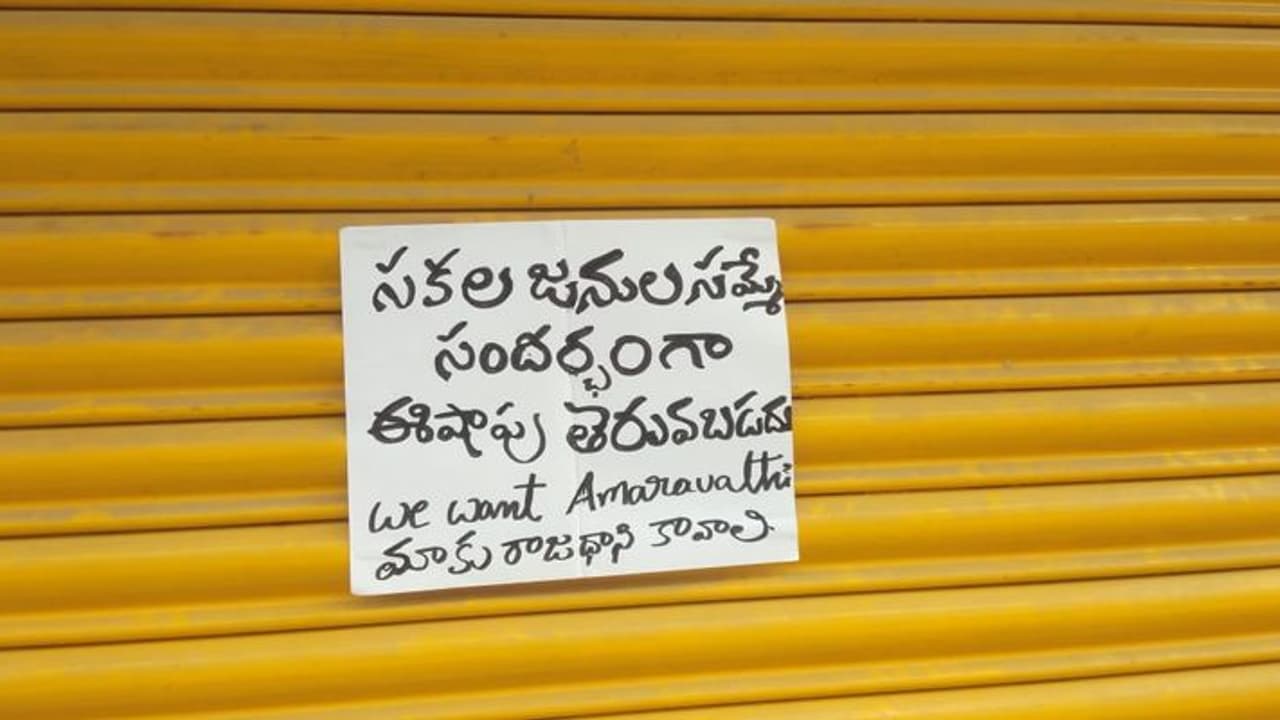 సకల జనుల సమ్మే
సందర్భంగా
ఈ షాపు తెరువబడదు
we want Amaravathi
మాకు రాజధాని కావాలి